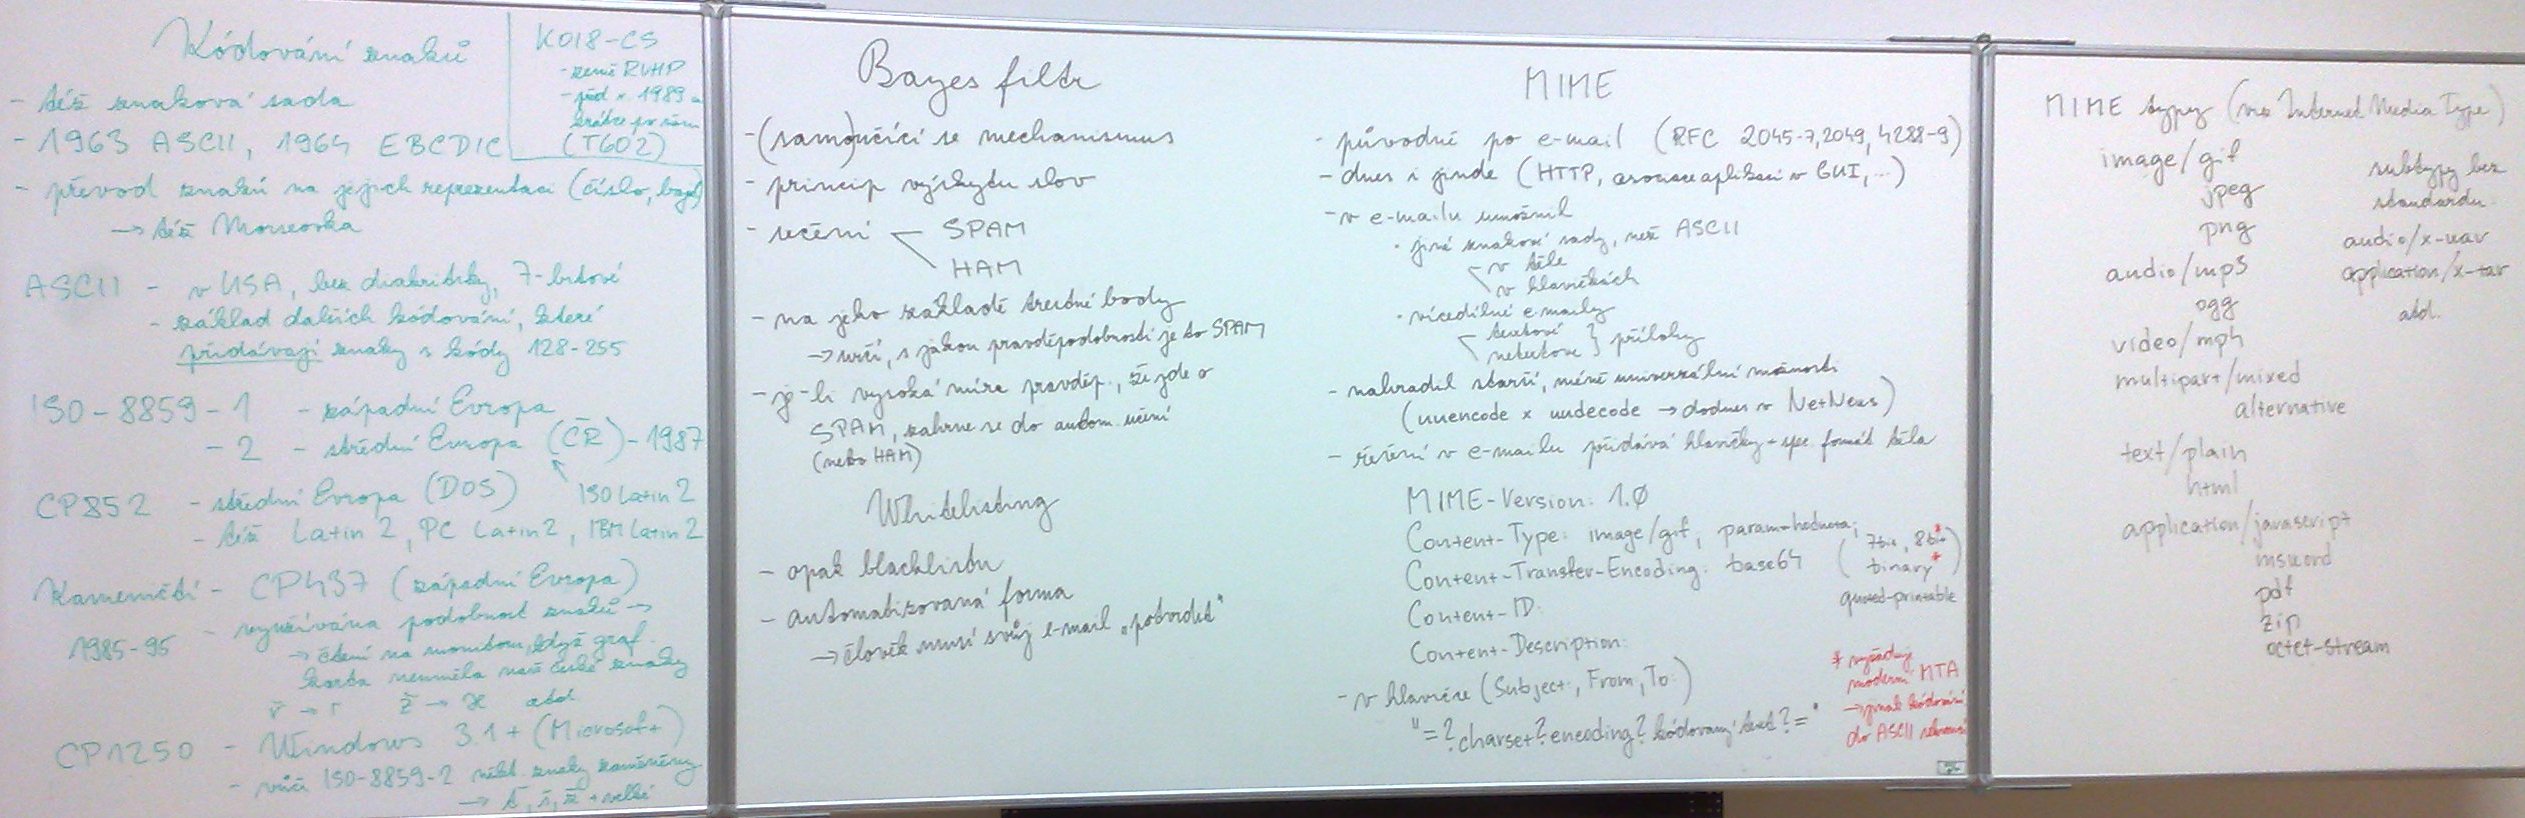 Kódování znaků
- též znaková sada
- 1963 ASCII, 1964 EBCDIC
KOI8-CS
- země RVHP
- před r. 1989 a
krátce po něm
(T602)
- převod znaků na jejich reprezentaci (číslo, bajt)
→ též Morseovka
ASCII - v USA, bez diakritiky, 7-bitové
- základ dalších kódování, které
přidávají znaky s kódy 128-255
ISO-8859-1 - západní Evropa
-2 - střední Evropa (ČR) - 1987
ISO Latin 2
CP852 - střední Evropa (DOS)
- též Latin 2, PC Latin 2, IBM Latin 2
Kameničtí - CP437 (západní Evropa)
1985-95 - využívána podobnost znaků →
→ čtení na monitoru, když graf.
karta neuměla naše české znaky
ř → r ž → atd.
CP1250 - Windows 3.1+ (Microsoft)
- vůči ISO-8859-2 někt. znaky zaměněny
→ ť, š, ž + velké
Bayes filtr
- (samo)učící se mechanismus
- princip výskytu slov
- učení
SPAM
HAM
- na jeho základě trestné body
→ určí, s jakou pravděpodobností je to SPAM
- je-li vysoká míra pravděp., že jde o
SPAM, zahrne se do autom. učení
(nebo HAM)
Whitelisting
- opak blacklistu
- automatizovaná forma
→ člověk musí svůj e-mail „potvrdit"
MIME
- původně po e-mail (RFC 2045-7, 2049, 4288-9)
- dnes i jinde (HTTP, asociace aplikací v GUI, ...)
- v e-mailu umožnil
· jiné znakové sady, než ASCII
- v těle
v hlavičkách
· vícedílné e-maily
- textové
netextové } přílohy
- nahradil starší, méně univerzální možnosti
(uuencode x uudecode → dodnes v NetNews)
- řešení v e-mailu přidává hlavičky + spec. formát těla
MIME-Version: 1.0
Content-Type: image/gif; param=hodnota;
Content-Transfer-Encoding: base64 (7bit, 8bit*
binary*)
quoted-printable
Content-ID:
Content-Description:
- v hlavičce (Subject:, From, To:)
"=?charset?encoding?kódovaný text?="
* vyžaduje
moderní MTA
→ jinak kódování
do ASCII
MIME typy (viz Internet Media Type)
image/gif
jpeg
png
audio/mp3
ogg
video/mph
multipart/mixed
alternative
text/plain
html
application/javascript
msword
pdf
zip
octet-stream
subtypy bez
standardu
audio/x-wav
application/x-tar
atd.